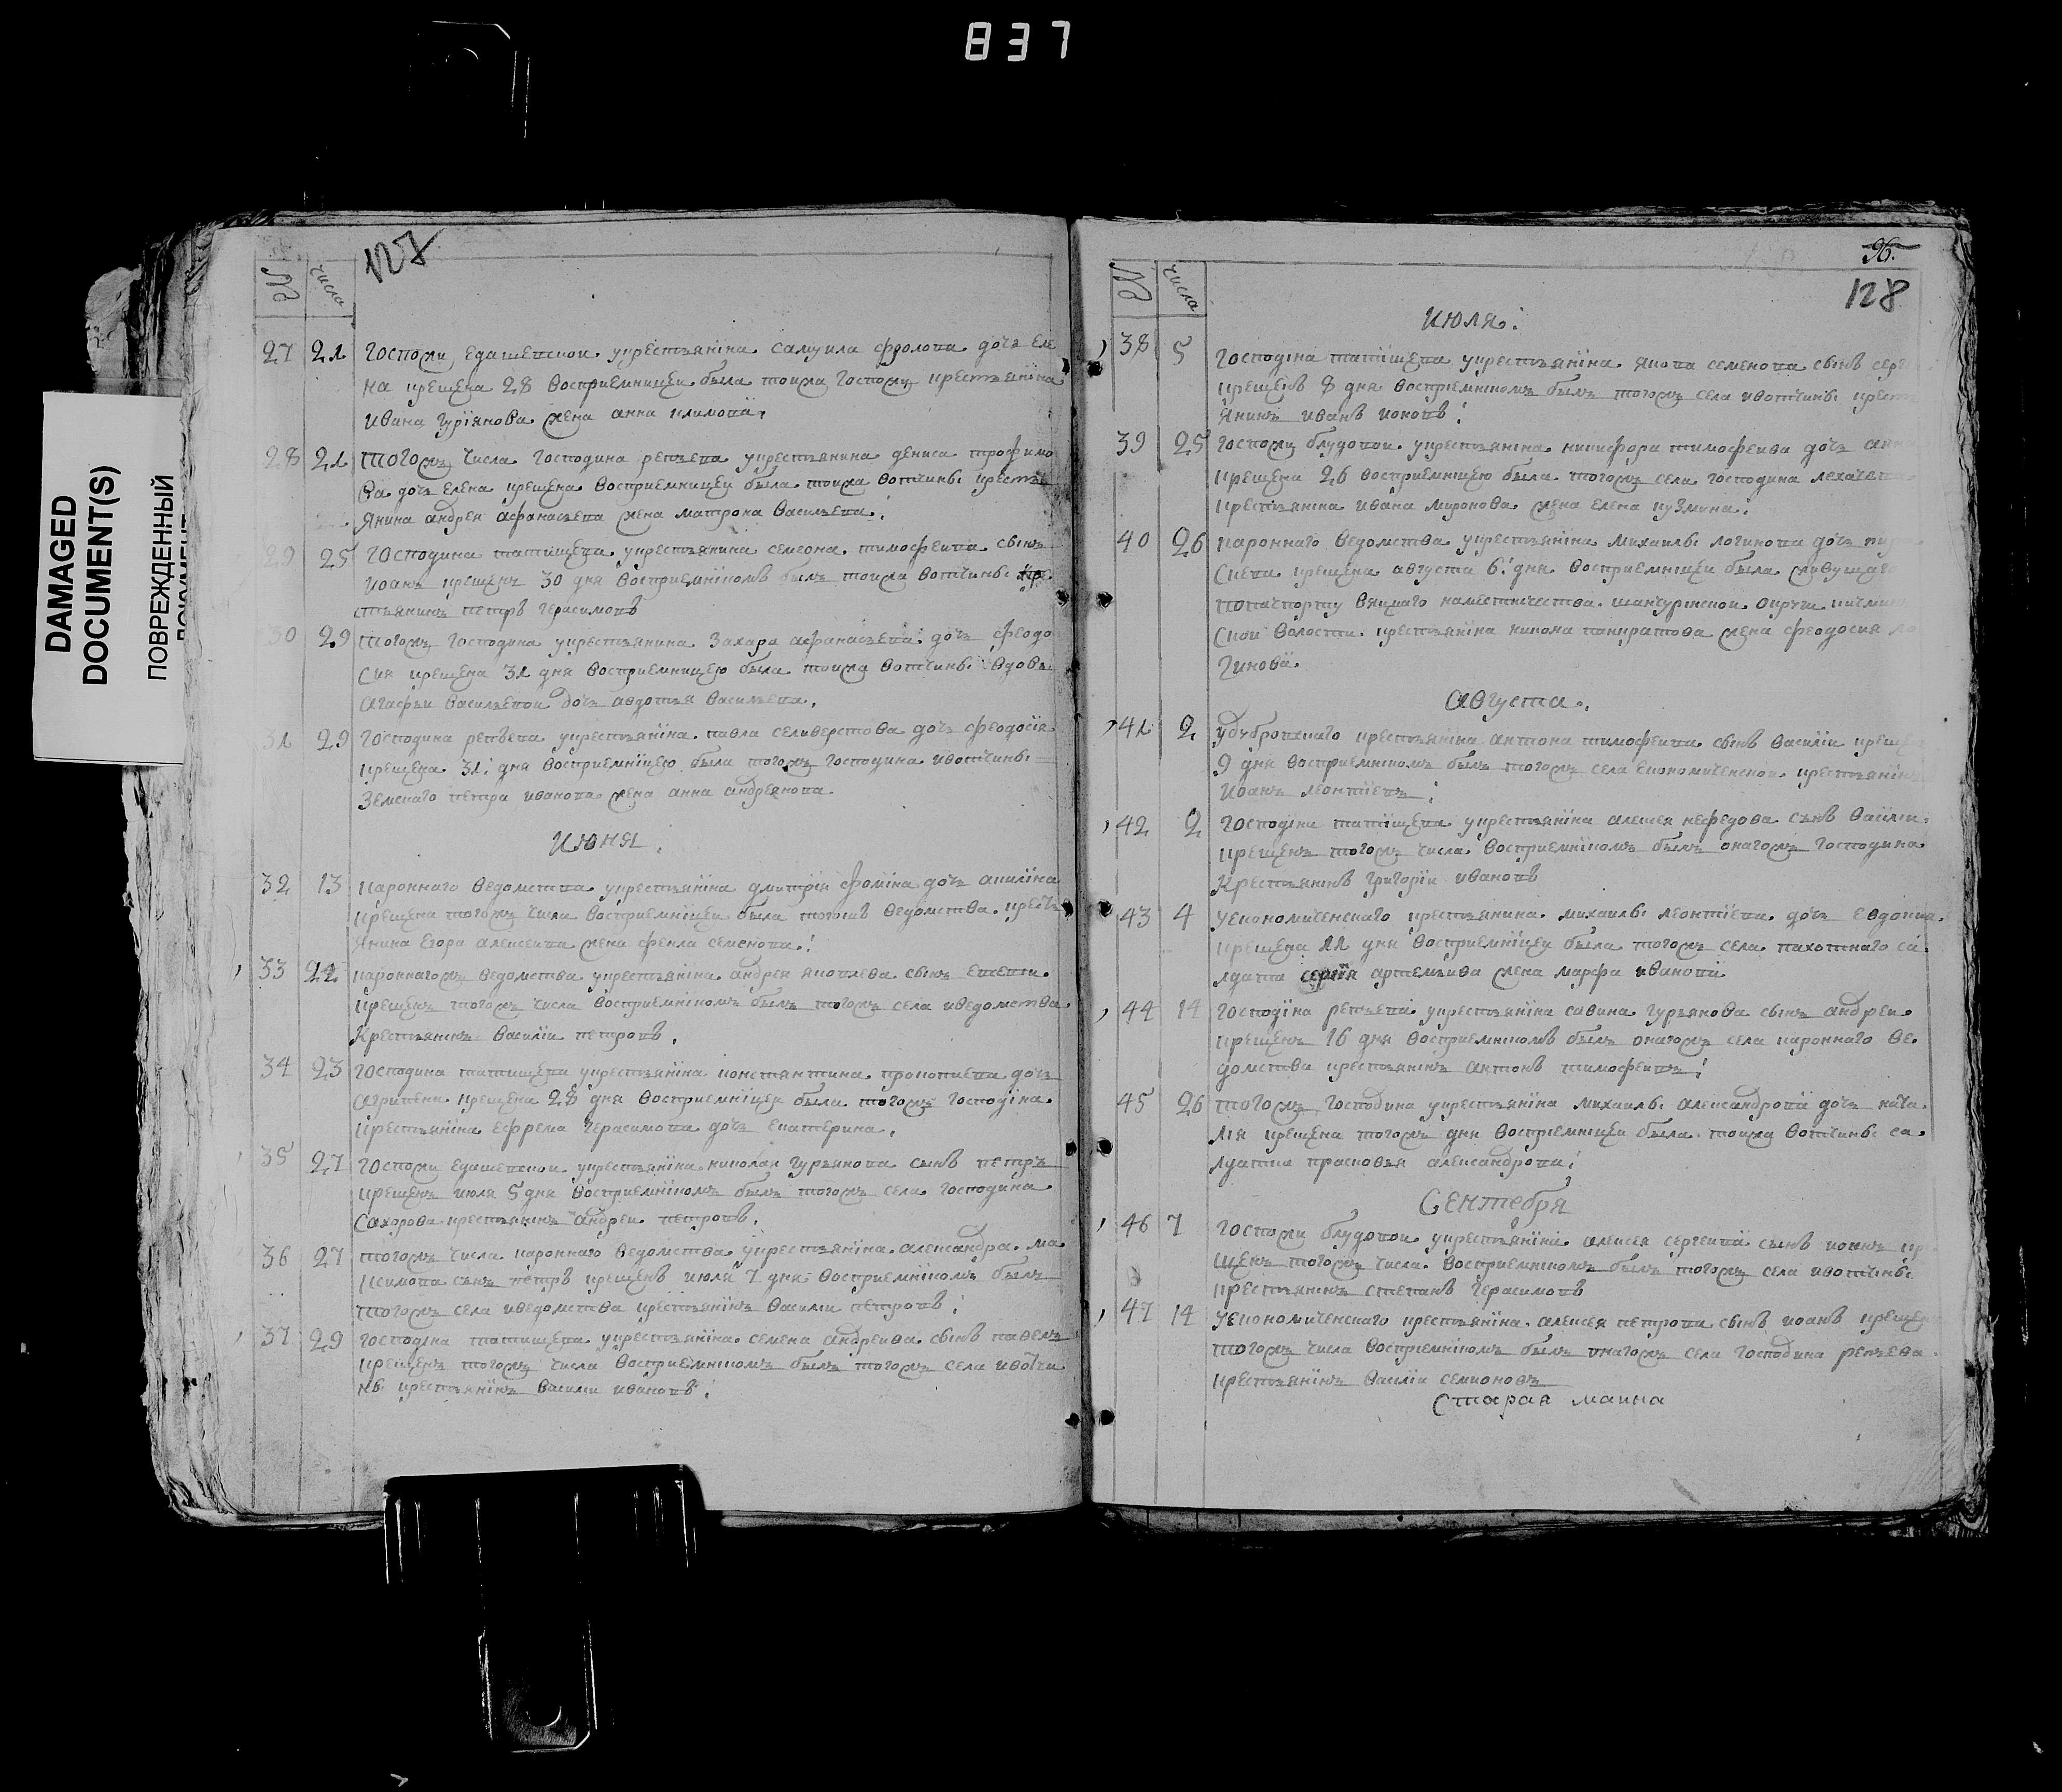 837
DAMAGED
DOCUMENT(S)
ПОВРЕЖДЕННЫЙ
127
№ числа
27 21 госпожи едашевской укрестьянина самуила фролова дочь еле
на крещена 28 восприемницеи была тоижа госпожи крестьянина
ивана гуріянова жена анна климова
28 21 тогожъ числа господина репьева укрестьянина дениса трофимо
ва дочь елена крещена восприемницеи была тоижа вотчины кресть
янина андрея афанасьева жена матрона васильева.
29 25 господина татищева укрестьянина семеона тимофеива сынъ
иоанъ крещенъ 30 дня восприемнікомъ былъ тоижа вотчины кре
стьянинъ петръ герасимовъ
30 29 тогожъ господина укрестьянина захара афанасьева дочь феодо
сия крещена 31 дня восприемницею была тоижа вотчины вдовы
агафьи васильевои дочь авдотья васильева.
31 29 господина репьева укрестьяніна павла селиверстова дочь феодосія
крещена 31: дня восприемніцею была тогожъ господина ивотчины
земскаго петра иванова жена анна андреянова
июня.
32 13 кароннаго ведомства укрестьяніна дмитрія фоміна дочь акиліна
крещена тогожъ числа восприемніцеи была тогожъ ведомства кресть
янина егора алексеива жена фекла семенова:
33 22 кароннагожъ ведомства укрестьяніна андрея яковлева сынъ евсеви
крещенъ тогожъ числа восприемнікомъ былъ тогожъ села иведомства
крестьянинъ василіи петровъ.
34 23 господина татищева укрестьяніна константина прокопиева дочь
агрипена крещена 28 дня восприемніцеи была тогожъ господіна
крестьяніна ефрема герасимова дочь екатерина.
35 27 госпожи едашевскои укрестьяніна николая гурьянова сынъ петръ
крещенъ июля 5 дня восприемнікомъ былъ тогожъ села господина
сахорова крестьянинъ андреи петровъ.
36 27 тогожъ числа кароннаго ведомства укрестьяніна александра ма
ксимова сынъ петръ крещенъ июля 7 дня восприемнікомъ былъ
тогожъ села иведомства крестьянінъ василіи петровъ:
37 29 господіна татищева укрестьяніна семена андреива сынъ павелъ
крещенъ тогожъ числа восприемнікомъ былъ тогожъ села ивотчи
ны крестьянінъ василіи ивановъ:
96.
128
№ числа
июля:
38 5 господіна татіщева укрестьяніна якова семенова сынъ
крещенъ 8 дня восприемнікомъ былъ тогожъ села ивотчины
янинъ иванъ коновъ:
39 25 госпожи блудовои укрестьяніна никифора тимофеива дочь
крещена 26 восприемніцею была тогожъ села господина
крестьяніна ивана миронова жена елена кузмина:
40 26 кароннаго ведомства укрестьяніна михаилы логинова дочь
крещена августа 6: дня восприемніцеи была живущаго
попачпорту вяцкаго наместничества шанчурінскои округи
скои волости крестьяніна никона панкратова жена феодосия ло
гинова.
августа.
41 2 крестьяніна антона тимофеива сынъ василіи
9 дня восприемнікомъ былъ тогожъ села економическои крестьянінъ
иоанъ леонтіевъ:
42 2 господіна татіщева укрестьяніна алексея нефедова сынъ василіи
крещенъ тогожъ числа восприемнікомъ былъ онагожъ господина
крестьянінъ григоріи ивановъ
43 4 уекономическаго крестьянина михаилы леонтіева дочь евдокия
крещена 11 дня восприемніцеи была тогожъ села пахотнаго са
лдата сергія артемьива жена марфа иванова
44 14 господіна репьева укрестьяніна савина гурьянова сынъ андреи
крещенъ 16 дня восприемнікомъ былъ онагожъ села кароннаго ве
домства крестьянінъ антонъ тимофеивъ:
45 26 тогожъ господина укрестьяніна михаилы александрова дочь ната
лія крещена тогожъ дня восприемніцеи была тоижа вотчины са
лдатка прасковья александрова:
Сентебря
46 7 госпожи блудовои укрестьяніна алексея сергеива сынъ иоанъ кр
щенъ тогожъ числа восприемнікомъ былъ тогожъ села ивотчины
крестьянинъ степанъ герасимовъ
47 14 уекономическаго крестьяніна алексея петрова сынъ иоанъ
тогожъ числа восприемнікомъ былъ онагожъ села господина репьева
крестьянінъ василіи семионовъ
Старая маина